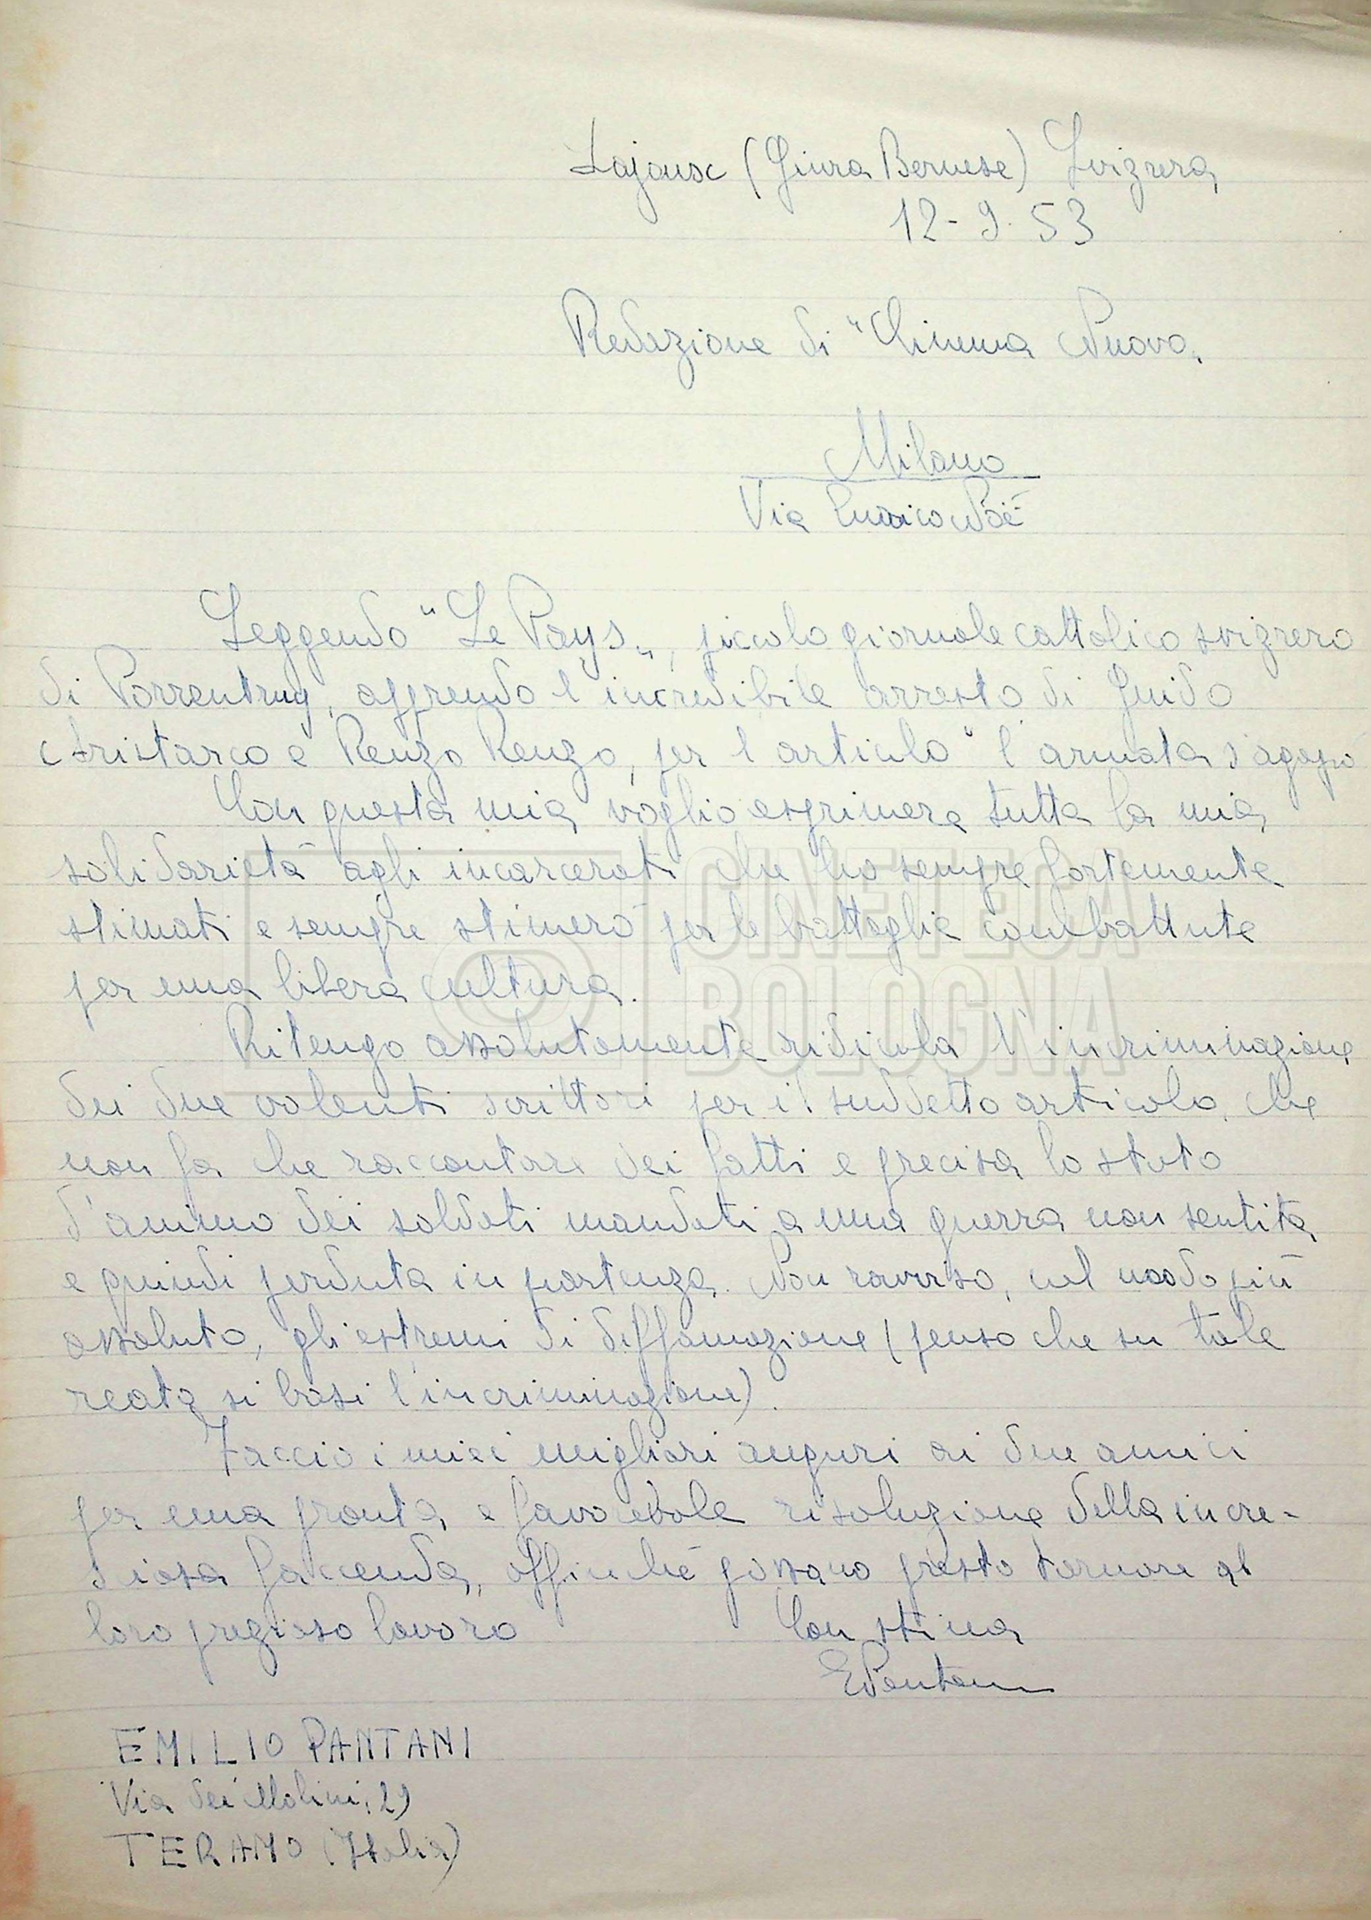 Lajoux (Giura Bernese) Svizzera
12-9-53
Redazione di "Cinema Nuovo"
Milano
Via Enrico Noë
Leggendo "Le Pays", piccolo giornale cattolico svizzero
di Porrentruy, apprendo l'incredibile arresto di Guido
Aristarco e Renzo Renzi, per l'articolo "l'armata s'agapò"
Con questa mia voglio esprimere tutta la mia
solidarietà agli incarcerati che ho sempre fortemente
stimati e sempre stimerò per le battaglie combattute
per una libera cultura.
Ritengo assolutamente ridicola l'incriminazione
dei due valenti scrittori per il suddetto articolo, che
non fa che raccontare dei fatti e precisa lo stato
d'animo dei soldati mandati a una guerra non sentita
e quindi perduta in partenza. Non ravviso, nel modo più
assoluto, gli estremi di diffamazione (penso che su tale
reato si basi l'incriminazione).
Faccio i miei migliori auguri ai due amici
per una pronta e favorevole risoluzione della incre-
sciosa faccenda, affinché possano presto tornare al
loro prezioso lavoro
Con stima
EPantani
EMILIO PANTANI
Via dei Molini, 29
TERAMO (Italia)
CINETECA
BOLOGNA